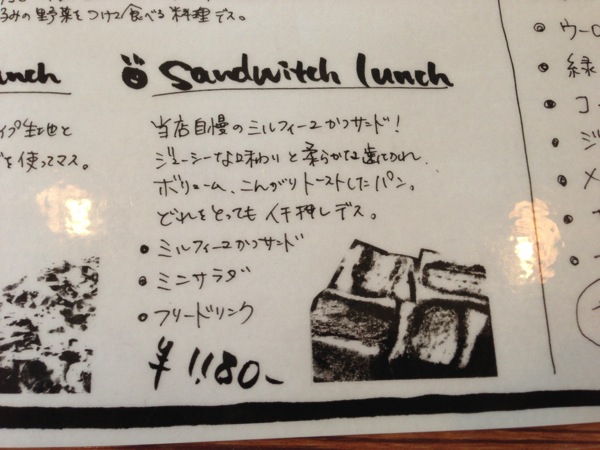 るみの野菜をつけて食べる料理デス。
unch
イプ生地と
を使ってマス。
Sandwitch lunch
当店自慢のミルフィーユかつサンド!
ジューシーな味わいと柔らかな歯ごたえ
ボリューム、こんがりトーストしたパン。
どれをとってもイチ押しデス。
・ミルフィーユかつサンド
・ミニサラダ
・フリードリンク
¥1,180-
ウーロ
緑
コー
ジ
メ